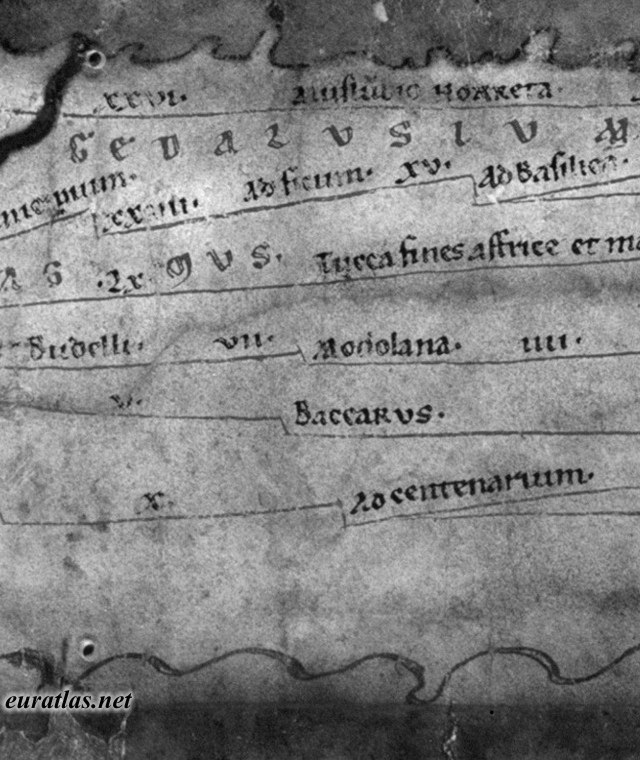 xxvi. horreta.
GEDALUSIUM
xxxiii. Ad ficum. xv. Ad Basilica.
AG .Lx GUS. Tucca fines affrice et ma
Budelli. vii. Modolana. iiii.
v. Baccarus.
x. Ad centenarium.
euratlas.net